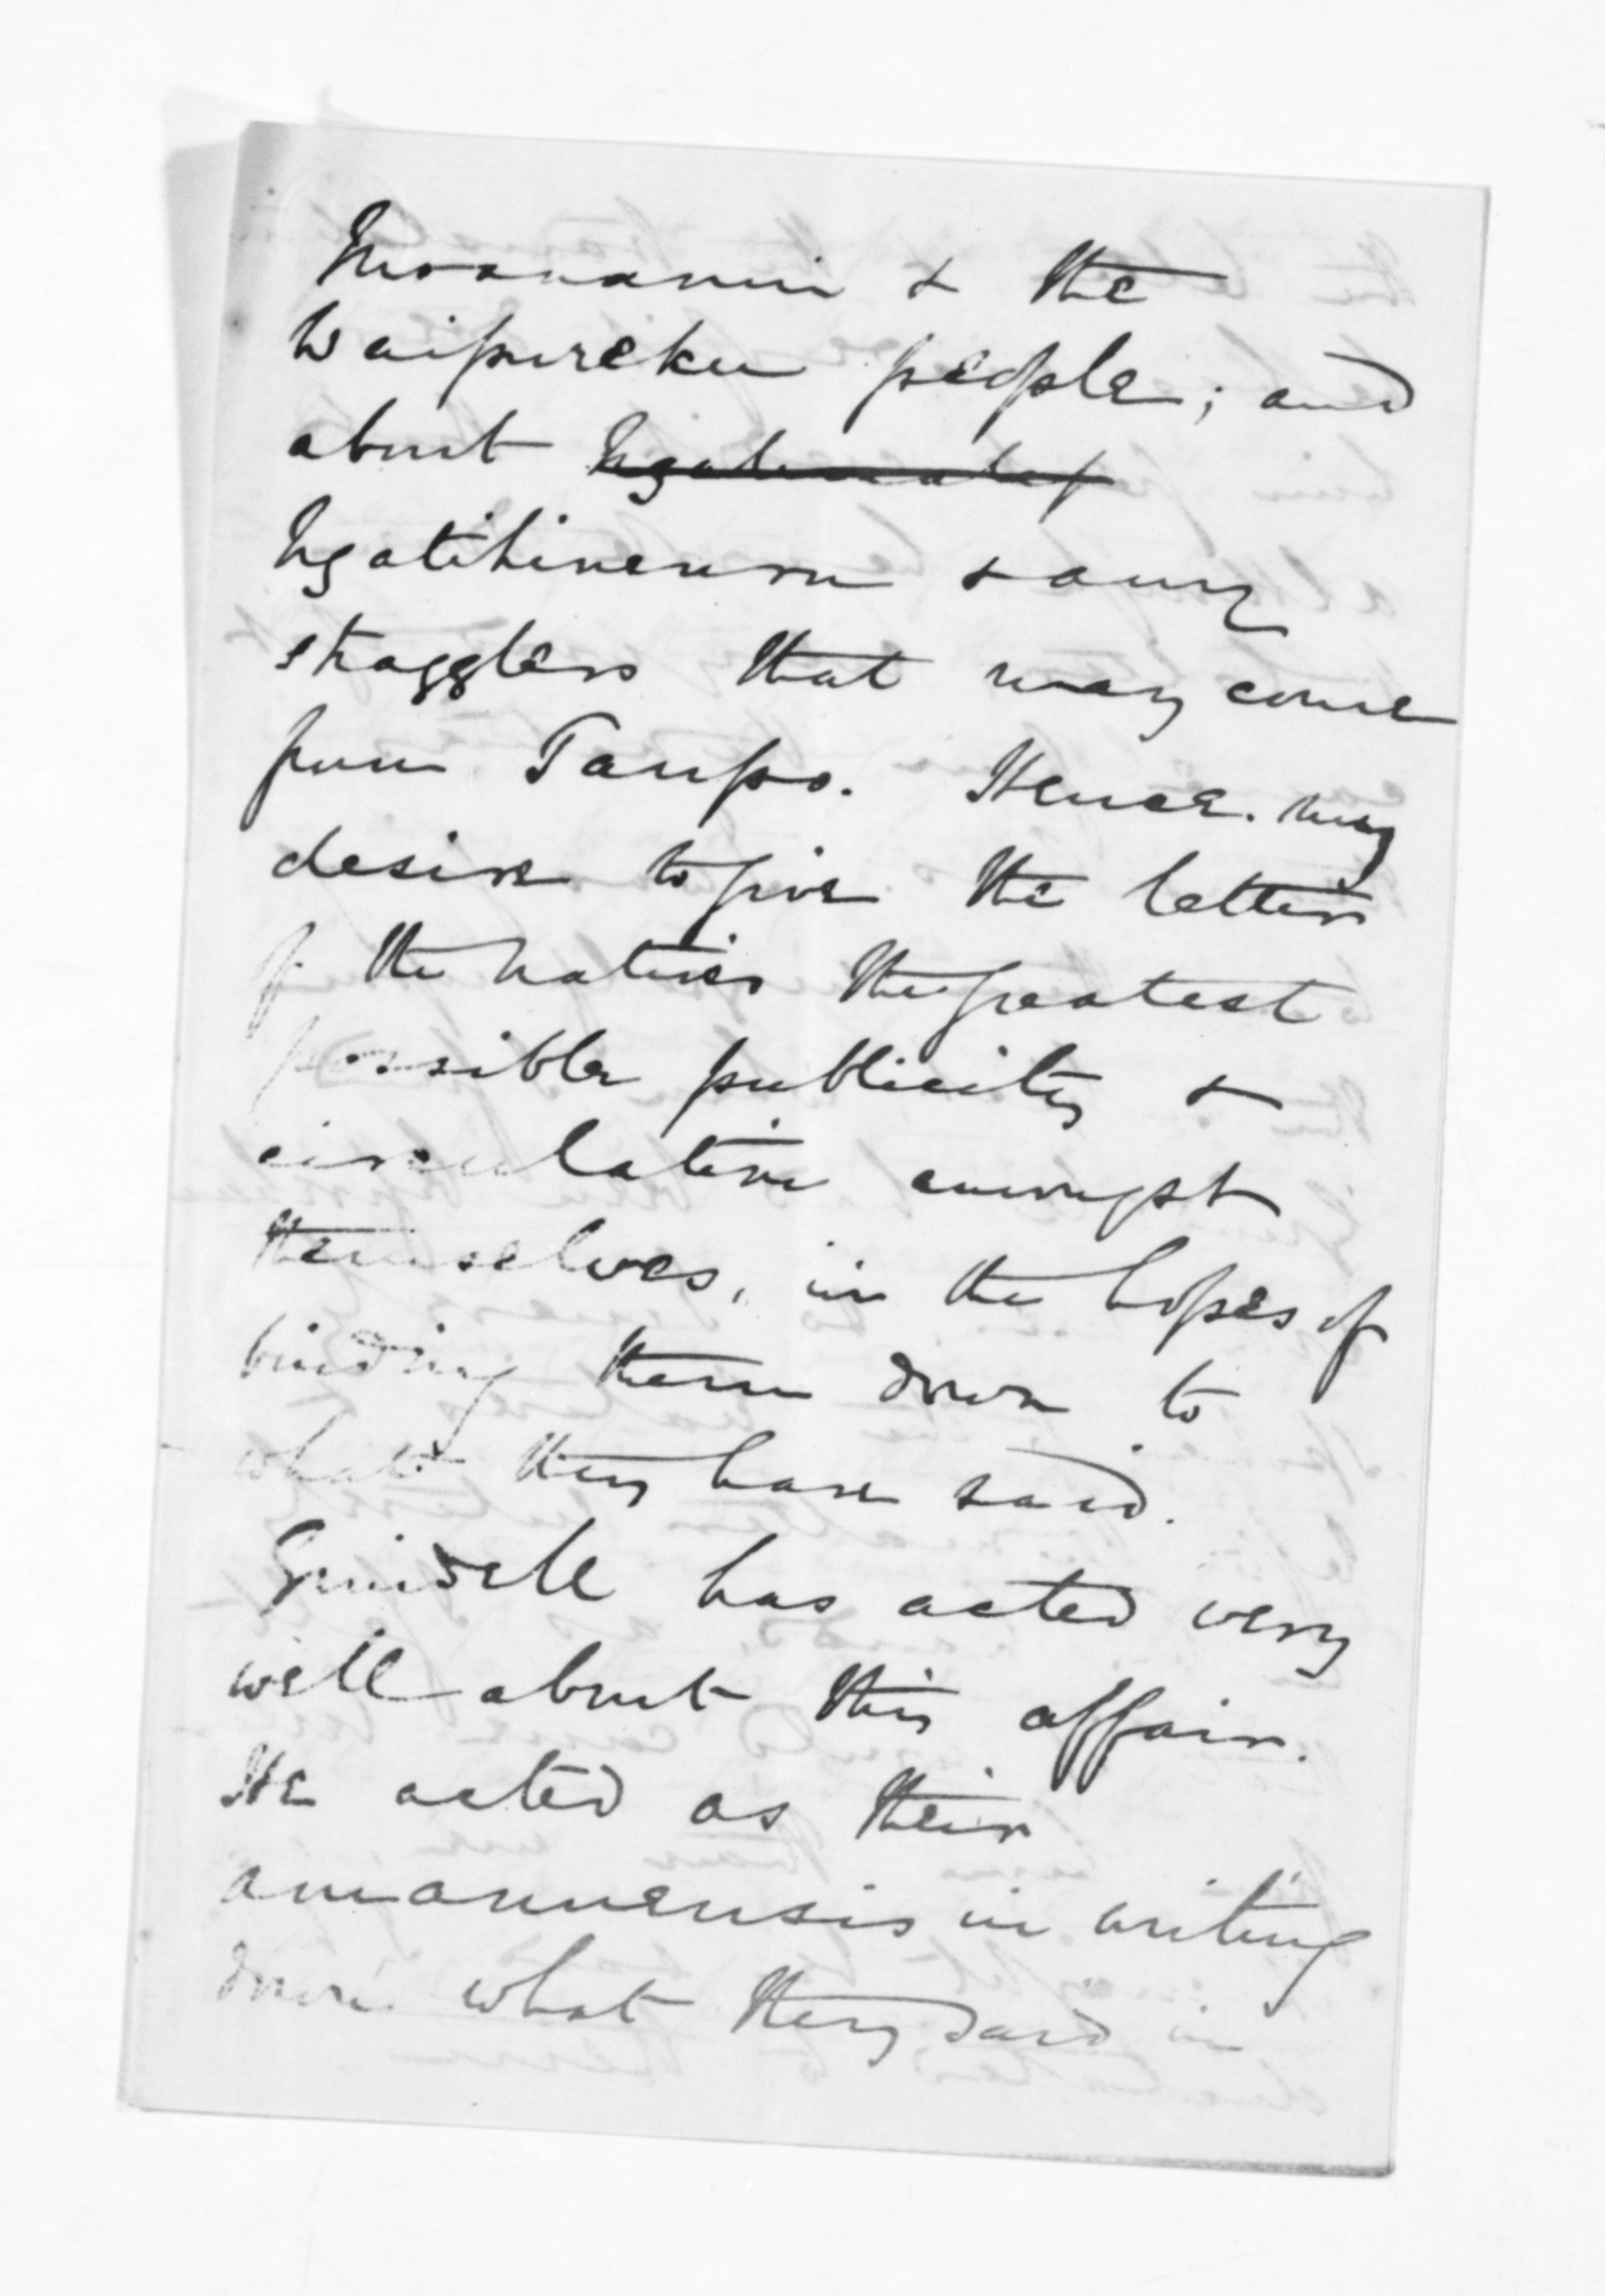 Moananui & the
Waipureku people; and
about
Ngatihinenuru & any
stragglers that may come
from Taupo. Hence. my
desire to give the letter
of the natives the greatest
possible publicity &
circulation amongst
themselves, in the hopes of
binding them down to
what they have said.
Grindell has acted very
well about this affair.
He acted as their
amanuensis in writing
down what they said in